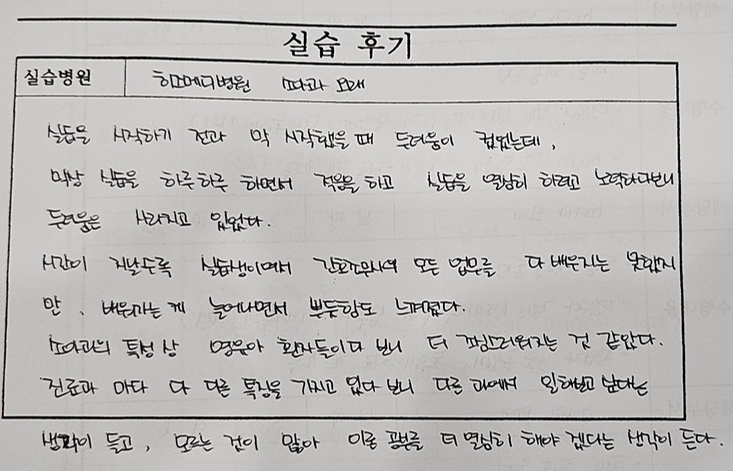 실습 후기
실습병원 히즈메디병원 소아과 외래
실습을 시작하기 전과 막 시작했을 때 두려움이 컸었는데,
막상 실습을 하루하루 하면서 적응을 하고 실습을 열심히 하려고 노력하다보니
두려움은 사라지고 있었다.
시간이 지날수록 실습생이여서 간호조무사의 모든 업무를 다 배우지는 못했지
만, 배워가는게 늘어나면서 뿌듯함도 느껴졌다.
소아과의 특성 상 영유아 환자들이다 보니 더 조심스러워지는 것 같았다.
진료과 마다 다 다른 특징을 가지고 있다 보니 다른 과에서 일해보고 싶다는
생각이 들고, 모르는 것이 많아 이론 공부를 더 열심히 해야 겠다는 생각이 든다.